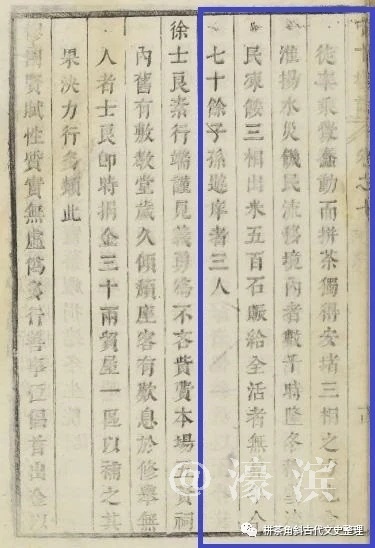 徒率乘蠢動而拼茶獨得安堵三相之
淮揚水災饑民流移境內者數千時隆冬
民凍餒三相出米五百石賑給全活者無人
七十餘子孫遊庠者三人
徐士良素行端謹見義勇爲不吝貲費本場五賢祠
內舊有敷教堂歲久傾頹座客有歎息於修舉無
人者士良即時捐金三十兩買屋一區以補之其
果決力行多類此
賓賦性質實無虛僞多行善學倡首出金以
@濠滨
拼茶角斜古代文史整理